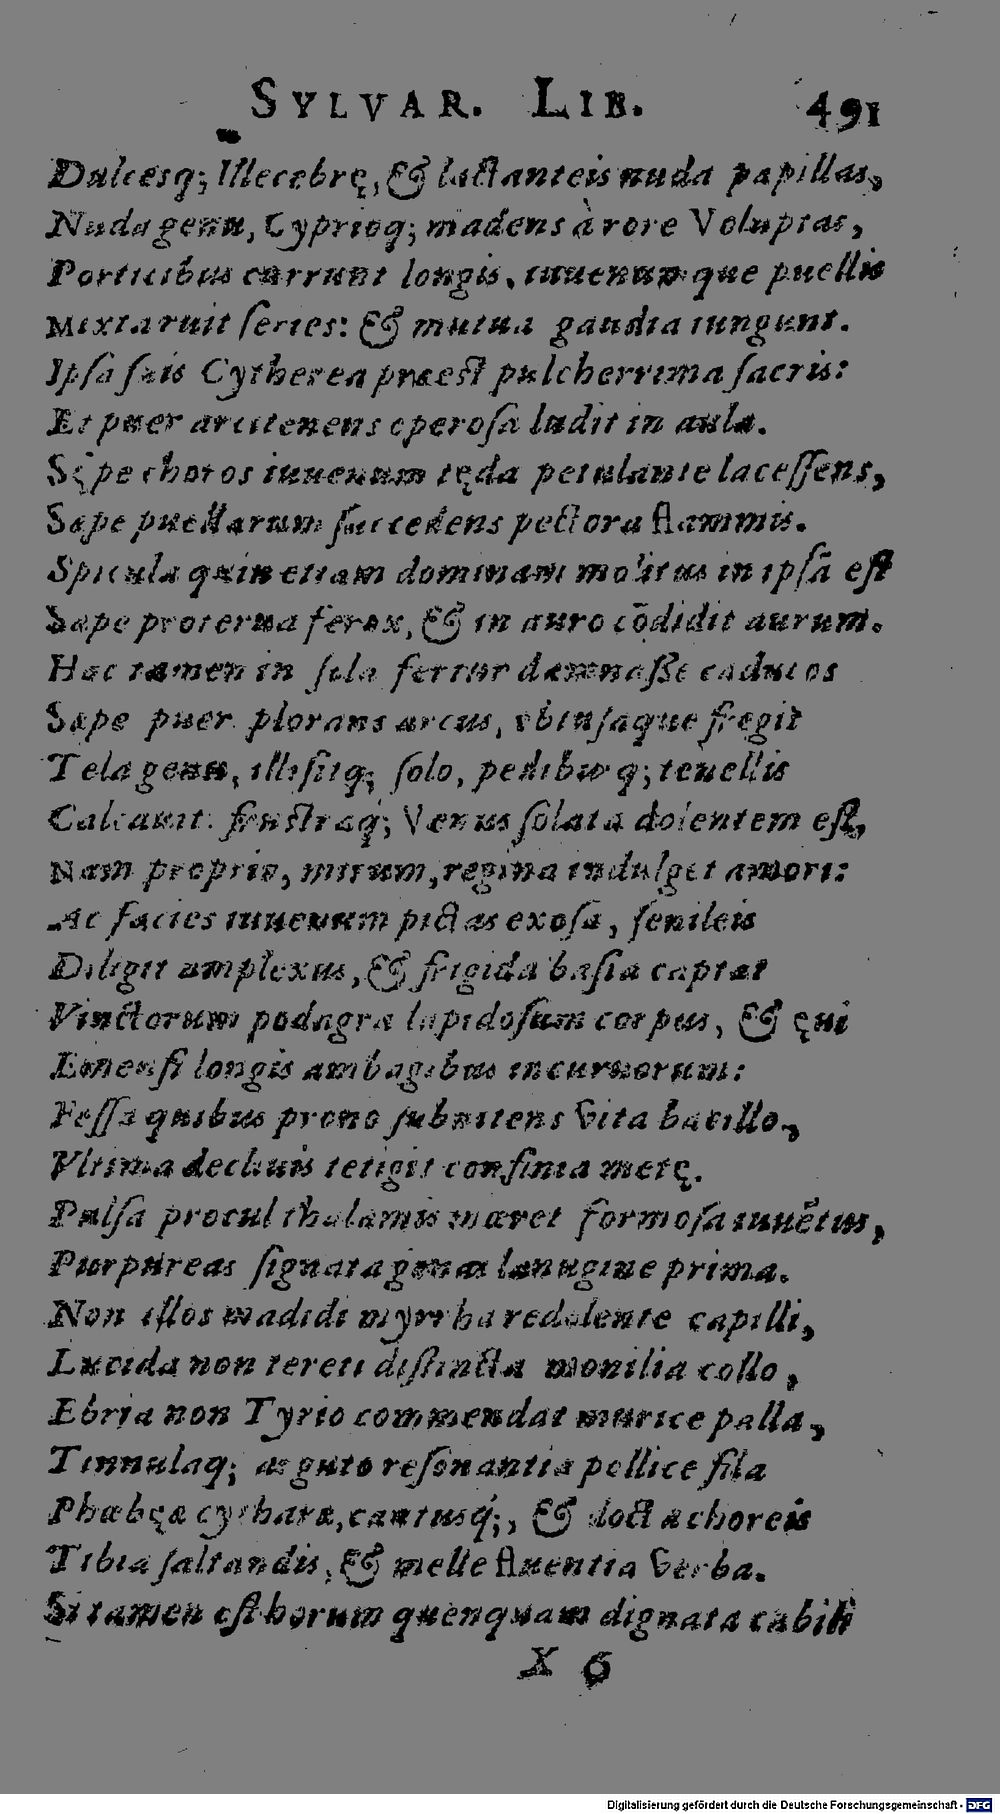 SYLVAR. LIB. 491
Dulcesq; Illecebrę, & lactanteis nuda papillas,
Nuda genu, Cyprioq; madens à rore Voluptas,
Porticibus currunt longis, iuuenumque puellis
Mixta ruit ſeries: & mutua gaudia iungunt.
Ipſa ſuis Cytherea præest pulcherrima ſacris:
Et puer arcitenens operoſa ludit in aula.
Sępe choros iuuenum tęda petulante laceſſens,
Sæpe puellarum ſuccedens pectora flammis.
Spicula quin etiam dominam molitus in ipſã eſt
Sæpe proterua ferox, & in auro cõdidit aurum.
Hac tamen in ſola fertur damnaſſe caducos
Sæpe puer plorans arcus, obiuſaque fregit
Tela genu, illiſitq; ſolo, pedibusq; tenellis
Calcauit: frustraq́; Venus ſolata dolentem eſt,
Nam proprio, mirum, regina indulget amori:
Ac facies iuuenum pictas exoſa, ſenileis
Diligit amplexus, & frigida baſia captat
Vinctorum podagra lapidoſum corpus, & ęui
Emenſi longis ambagibus incuruorum:
Feſſa quibus prono ſubnitens vita bacillo,
Vltima decliuis tetigit confinia metę.
Pulſa procul thalamis mæret formoſa iuuẽtus,
Purpureas ſignata genas lanugine prima.
Non illos madidi myrrha redolente capilli,
Lucida non tereti diſtincta monilia collo,
Ebria non Tyrio commendat murice palla,
Tinnulaq; arguto reſonantia pollice fila
Phœbęæ cytharæ, cantusq́;, & docta choreis
Tibia ſaltandis, & melle fluentia verba.
Si tamen eſt horum quenquam dignata cubili
X 6
Digitalisierung gefördert durch die Deutsche Forschungsgemeinschaft - DFG